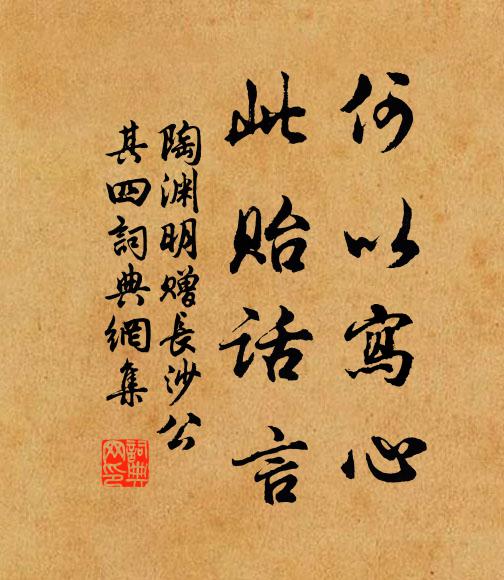 何以寫心
此貽話言
陶渊明赠長沙公
其四詞典網集
詞典
网印